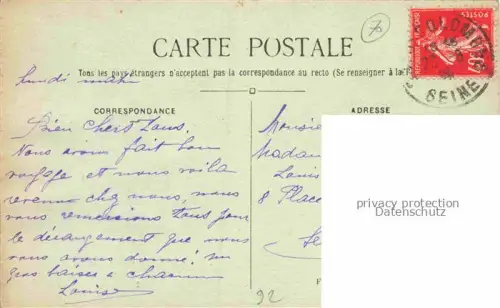 CARTE POSTALE
Tous les pays étrangers n'acceptent pas la correspondance au recto (Se renseigner à la
lundi matin
CORRESPONDANCE
ADRESSE
Bien Chers Tous.
Nous avons fait bon
voyage et nous voila
revenu chez nous, nous
vous remercions tous pour
le dérangement que nous
vous avons donné! un
gros baises a chacun
Louis
Monsieu
Madam
Louis
8 Place
privacy protection
Datenschutz
POSTES
COLOMBES
SEINE
92